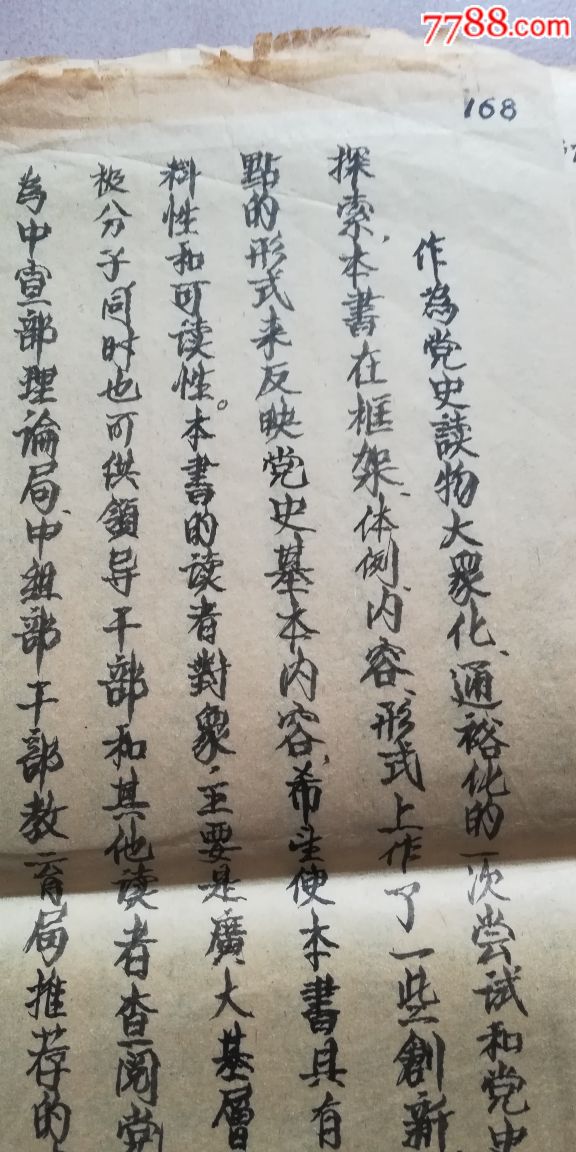 7788.com
168
作為党史読物大眾化、通裕化的一次尝试和党史
探索,本書在框架、体例、内容、形式上作了一些創新
點的形式来反映党史基本内容,希望使本書具有
料性和可读性。本書的读者對象,主要是廣大基層
极分子同时也可供領导干部和其他读者查阅党
為中宣部理論局、中組部干部教育局推荐的